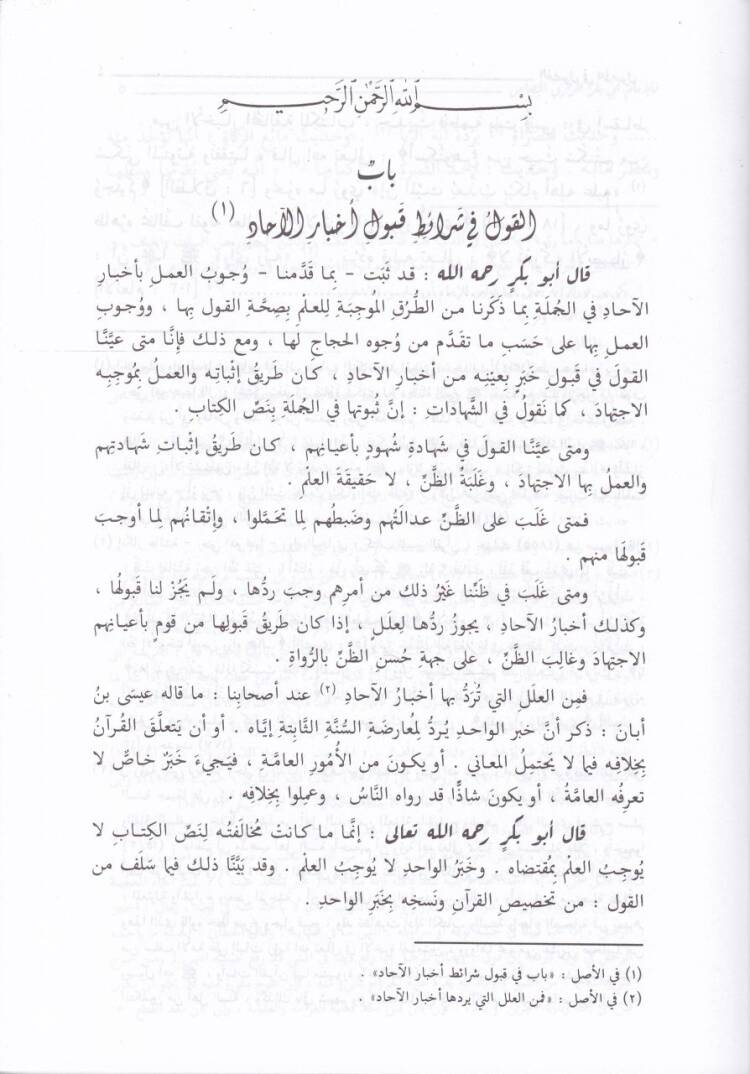 بِسْمِ اللهِ الرَّحْمٰنِ الرَّحِيمِ
بابٌ
القولُ في شَرائطِ قَبولِ أخبار الآحادِ (١)
قال أبو بَكْرٍ رحمه الله : قد ثبَت - بِما قدَّمنا - وُجوبُ العملِ بأخبارِ
الآحادِ في الجُملَةِ بِما ذكَرنا من الطُّرُقِ المُوجِبَةِ للعلمِ بصِحَّةِ القول بِها ، ووُجوبِ
العملِ بِها على حَسَبِ ما تقدَّم من وُجوه الحجاجِ لها ، ومع ذلك فإنَّا متى عيَّنَّا
القولَ في قَبولِ خَبَرٍ بِعينِه من أخبارِ الآحادِ ، كان طَريقُ إثباتِه والعملُ بمُوجِبِه
الاجتهادَ ، كما نَقولُ في الشَّهاداتِ : إنَّ ثُبوتها في الجُملةِ بِنَصِّ الكِتابِ .
ومتى عيَّنَّا القولَ في شَهادةِ شُهودٍ بأعيانِهم ، كان طَريقُ إثباتِ شَهادتِهم
والعملُ بِها الاجتهادَ ، وغَلَبَةَ الظَّنِّ ، لا حَقيقَةَ العلمِ .
فمتى غلَب على الظَّنِّ عدالَتُهم وضَبطُهم لِما تحَمَّلوا ، وإتقانُهم لِما أوجبَ
قَبولَها منهم .
ومتى غلَب في ظَنِّنا غَيْرُ ذلك من أمرِهم وجبَ ردُّها ، ولَم يَجُزْ لنا قَبولُها ،
وكذلك أخبارُ الآحادِ ، يجوزُ ردُّها لِعِلَلٍ ، إذا كان طَريقُ قَبولِها من قومٍ بأعيانِهم
الاجتهادَ وغالبَ الظَّنِّ ، على جِهةِ حُسنِ الظَّنِّ بالرُّواةِ .
فمِن العلَلِ التي تُرَدُّ بها أخبارُ الآحادِ (٢) عند أصحابِنا : ما قاله عيسَى بنُ
أبانَ : ذكر أنَّ خبَر الواحدِ يُردُّ لِمُعارضَةِ السُّنَّةِ الثَّابتةِ إيَّاه . أو أن يَتعلَّقَ القُرآنُ
بِخِلافِه فيما لا يَحتملُ المعاني . أو يكونَ من الأُمُورِ العامَّةِ ، فيَجيءَ خَبَرٌ خاصٌّ لا
تعرِفُه العامَّةُ ، أو يكونَ شاذًّا قد رواه النَّاسُ ، وعمِلوا بِخِلافِه .
قال أبو بَكْرٍ رحمه الله تعالى : إنَّما ما كانتْ مُخالَفتُه لِنَصِّ الكِتابِ لا
يُوجِبُ العلْمَ بمُقتضاه . وخَبَرُ الواحدِ لا يُوجِبُ العلمَ . وقد بيَّنَّا ذلك فيما سلَف من
القول : من تخصيصِ القرآنِ ونَسخِه بِخَبَرِ الواحدِ .
(١) في الأصل : «باب في قبول شرائط أخبار الآحاد» .
(٢) في الأصل : «فمن العلل التي يردها أخبار الآحاد» .